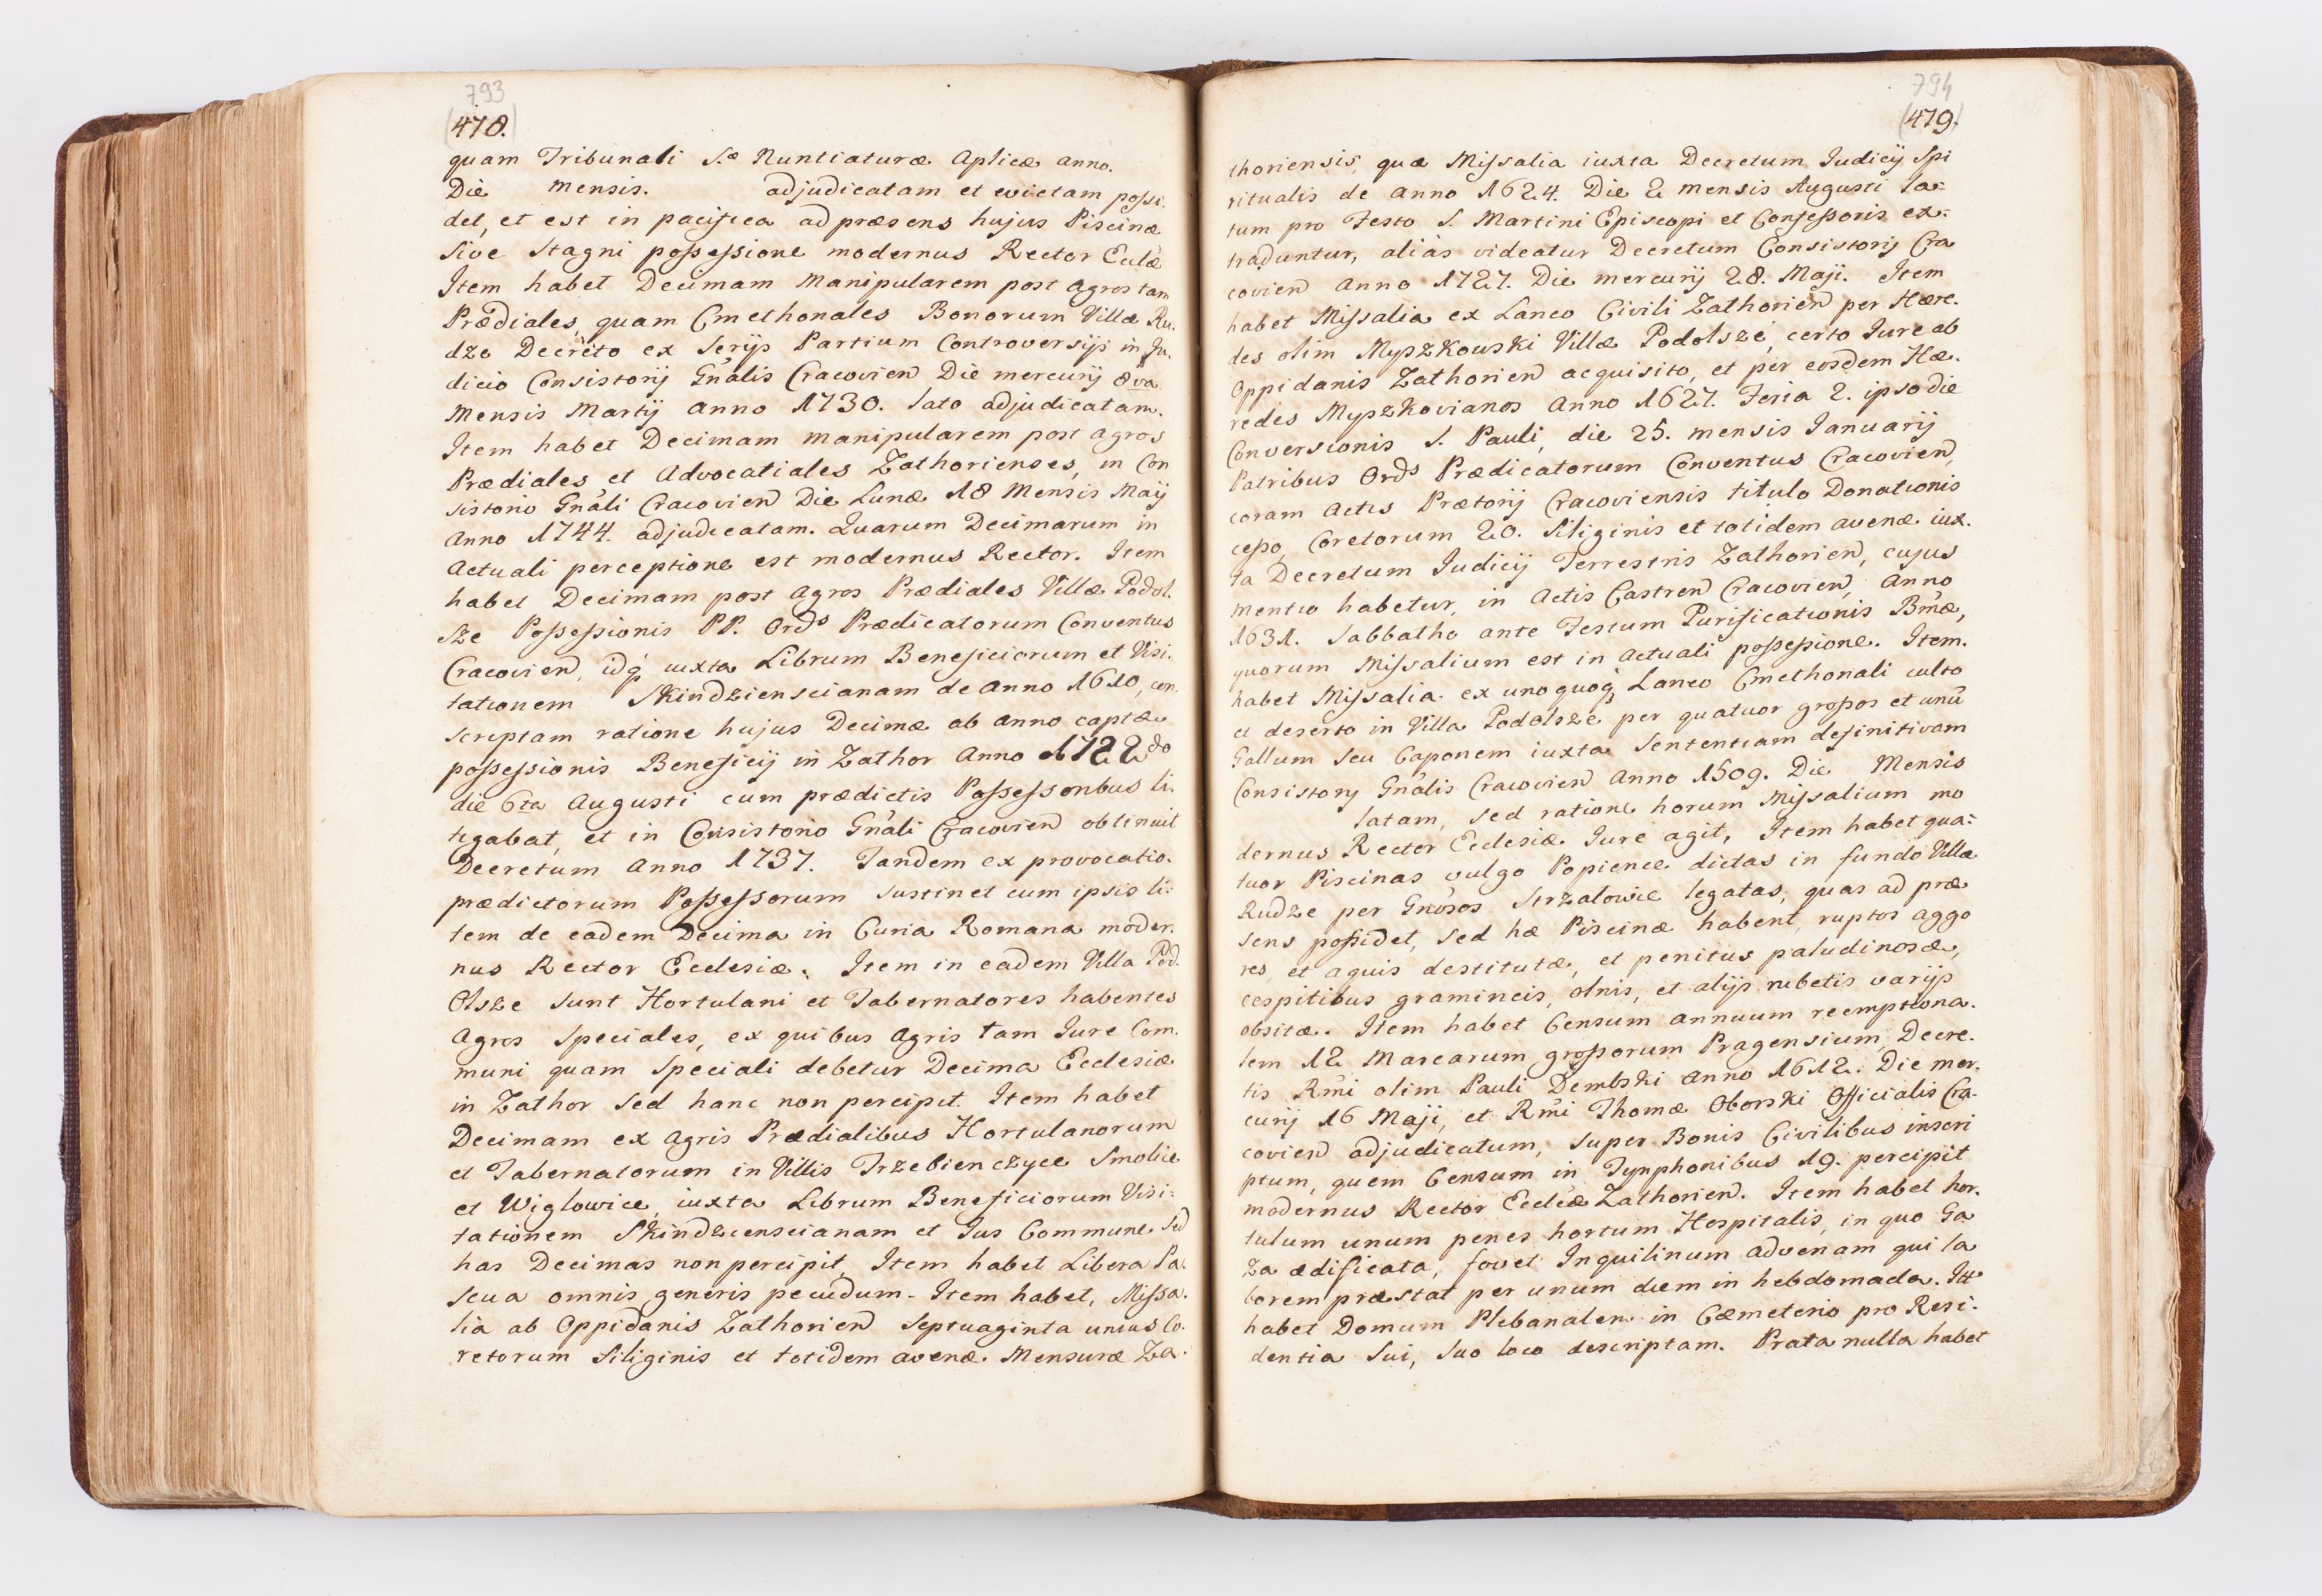 793
(478.)
quam Tribunali S.æ Nuntiaturæ Aplicæ anno.
Die mensis. adjudicatam et evictam possi.
det, et est in pacifica ad præsens hujus Piscinæ
sive Stagni possessione modernus Rector Eclæ
Item habet Decimam Manipularem post agros tam
Prædiales, quam Cmethonales Bonorum Villæ Ru.
dze Decreto ex Serijs Partium Controversijs in Ju.
dicio Consistorij Gnalis Cracovien Die mercurij 8va
Mensis Martij Anno 1730. lato adjudicatam.
Item habet Decimam manipularem post agros
Prædiales et Advocatiales Zathorienses, in Con
sistorio Gnali Cracovien Die Lunæ 18 Mensis Maij
Anno 1744. adjudicatam. Quarum Decimarum in
Actuali perceptione est modernus Rector. Item
habet Decimam post agros Prædiales Villæ Podol.
sze Possessionis PP. Ords Prædicatorum Conventus
Cracovien, idq iuxta Librum Beneficiorum et Visi.
tationem Skindzienscianam de anno 1610, con
scriptam ratione hujus Decimæ ab anno captæ
possessionis Beneficij in Zathor Anno 1722do
die 6ta Augusti cum prædictis Possessoribus li.
tigabat, et in Consistorio Gnali Cracovien obtinuit
Decretum Anno 1737. Tandem ex provocatio.
prædictorum Possessorum sustinet cum ipsis li:
tem de eadem Decima in Curia Romana moder.
nus Rector Ecclesiæ. Item in eadem Villa Pod.
olsze sunt Hortulani et Tabernatores habentes
Agros speciales, ex quibus Agris tam Jure Com.
muni quam speciali debetur Decima Ecclesiæ
in Zathor sed hanc non percipit. Item habet
Decimam ex Agris Prædialibus Hortulanorum
et Tabernatorum in Villis Trzebienczyce Smolice
et Wiglowice, iuxta Librum Beneficiorum Visi:
tationem Skindzienscianam et Jus Commune sed
has Decimas non percipit, Item habet Libera Pa.
scua omnis generis pecudum - Item habet, Missa.
lia ab Oppidanis Zathorien Septuaginta unius Co.
retorum Siliginis et totidem avenæ. Mensuræ Za.
794
(479.)
thoriensis, quæ Missalia iuxta Decretum Judicij Spi
ritualis de anno 1624. Die 2 mensis Augusti la=
tum pro Festo S. Martini Episcopi et Confessoris ex=
traduntur, alias videatur Decretum Consistorij Cra
covien Anno 1727. Die mercurij 28. Maji. Item
habet Missalia ex Laneo Civili Zathorien per Hære.
des olim Myszkowski Villæ Podolsze, certo Jure ab
Oppidanis Zathorien acquisito, et per eosdem Hæ.
redes Myszkovianos Anno 1627. Feria 2. ipso die
Conversionis S. Pauli, die 25. mensis Januarij
Patribus Ords Prædicatorum Conventus Cracovien,
coram Actis Prætorij Cracoviensis titulo Donationis
cesso, Coretorum 20. Siliginis et totidem avenæ iux.
ta Decretum Judicij Terrestris Zathorien, cujus
mentio habetur, in Actis Castren Cracovien, Anno
1631. Sabbatho ante Festum Purificationis Bmæ,
quorum Missalium est in Actuali possessione. Item.
habet Missalia ex unoquoq Laneo Cmethonali culto
et deserto in Villa Podolsze per quatuor grossos et unu
Gallum seu Caponem iuxta Sententiam definitivam
Consistorij Gnalis Cracovien Anno 1509. Die Mensis
latam, sed ratione horum Missalium mo
dernus Rector Ecclesiæ Jure agit, Item habet qua=
tuor Piscinas vulgo Popience dictas in fundo Villæ
Rudze per Gnosos Strzalowie legatas, quas ad præ
sens possidet, sed hæ Piscinæ habent, ruptos agge
res, et aquis destitutæ, et penitus paludinosæ,
cespitibus gramineis, olnis, et alijs rubetis varijs
obsitæ. Item habet Censum annuum reemptiona.
lem 12 Marcarum grossorum Pragensium, Decre.
tis Rmi olim Pauli Dembski Anno 1612. Die mer.
curij 16 Maji, et Rmi Thomæ Oborski Officialis Cra.
covien adjudicatum, super Bonis Civilibus inscri
ptum, quem Censum in Tynphonibus 19. percipit
modernus Rector Eccleæ Zathorien. Item habet hor.
tulum unum penes hortum Hospitalis, in quo Ga
za ædificata, fovet Inquilinum advenam qui la
borem præstat per unum diem in hebdomada. Itt
habet Domum Plebanalem in Cæmeterio pro Resi.
dentia sui, suo loco descriptam. Prata nulla habet